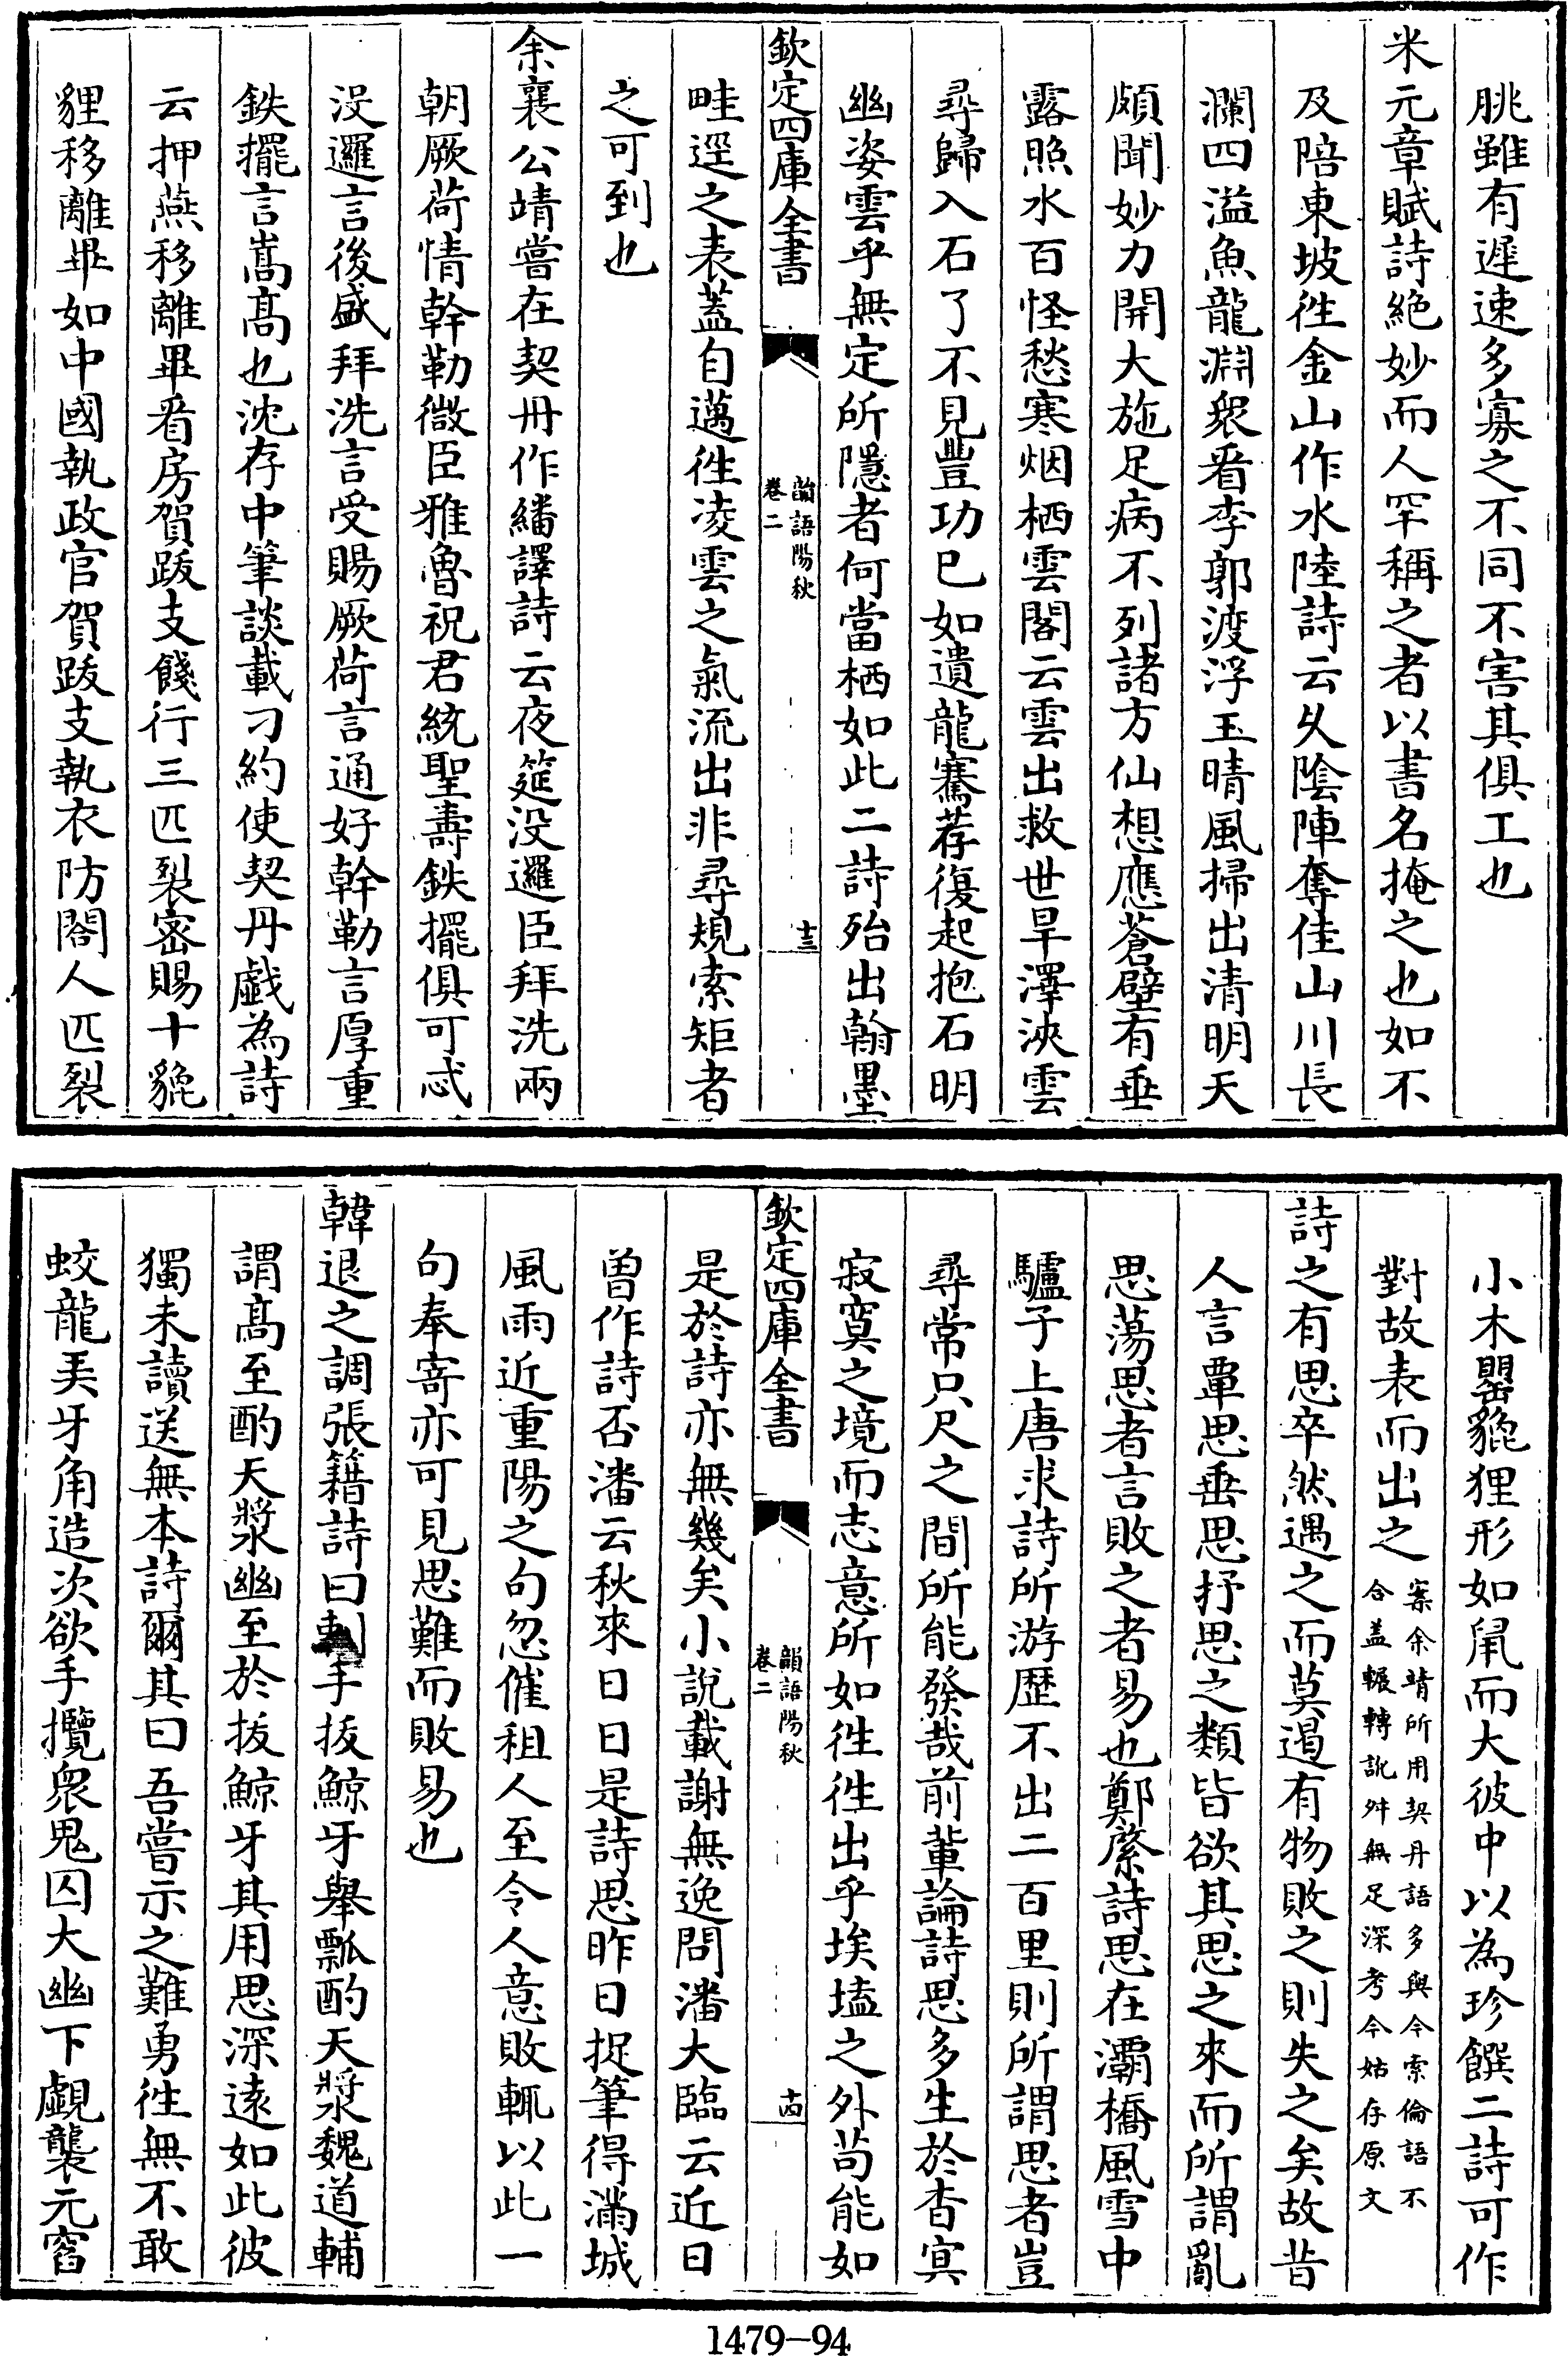 脁雖有遲速多寡之不同不害其俱工也
米元章賦詩絶妙而人罕稱之者以書名掩之也如不
及陪東坡徃金山作水陸詩云久陰陣奪佳山川長
瀾四溢魚龍淵衆看李郭渡浮玉晴風掃出清明天
頗聞妙力開大施足病不列諸方仙想應蒼壁有垂
露照水百怪愁寒烟栖雲閣云雲出救世旱澤浹雲
尋歸入石了不見豐功已如遺龍騫荐復起抱石明
幽姿雲乎無定所隱者何當栖如此二詩殆出翰墨
欽定四庫全書
韻語陽秋
卷二
十三
畦逕之表蓋自邁徃凌雲之氣流出非尋規索矩者
之可到也
余襄公靖嘗在契丹作繙譯詩云夜筵没邏臣拜洗兩
朝厥荷情幹勒微臣雅魯祝君統聖壽鉄擺俱可忒
没邏言後盛拜洗言受賜厥荷言通好幹勒言厚重
鉄擺言嵩髙也沈存中筆談載刁約使契丹戯為詩
云押燕移離畢看房賀跋支餞行三匹裂密賜十貔
貍移離畢如中國執政官賀跋支執衣防閤人匹裂
小木罌貔狸形如䑕而大彼中以為珍饌二詩可作
對故表而出之
案余靖所用契丹語多與今索倫語不
合盖輾轉訛舛無足深考今姑存原文
詩之有思卒然遇之而莫遏有物敗之則失之矣故昔
人言覃思垂思抒思之類皆欲其思之來而所謂亂
思蕩思者言敗之者易也鄭綮詩思在灞橋風雪中
驢子上唐求詩所游歴不出二百里則所謂思者豈
尋常只尺之間所能發哉前輩論詩思多生於杳冥
寂寞之境而志意所如徃徃出乎埃壒之外茍能如
欽定四庫全書
韻語陽秋
卷二
十四
是於詩亦無幾矣小說載謝無逸問潘大臨云近日
曽作詩否潘云秋來日日是詩思昨日捉筆得滿城
風雨近重陽之句忽催租人至令人意敗輒以此一
句奉寄亦可見思難而敗易也
韓退之調張籍詩曰刺手拔鯨牙舉瓢酌天漿魏道輔
謂髙至酌天漿幽至於拔鯨牙其用思深逺如此彼
獨未讀送無本詩爾其曰吾嘗示之難勇徃無不敢
蛟龍弄牙角造次欲手攬衆鬼囚大幽下覷襲元窞
1479-94